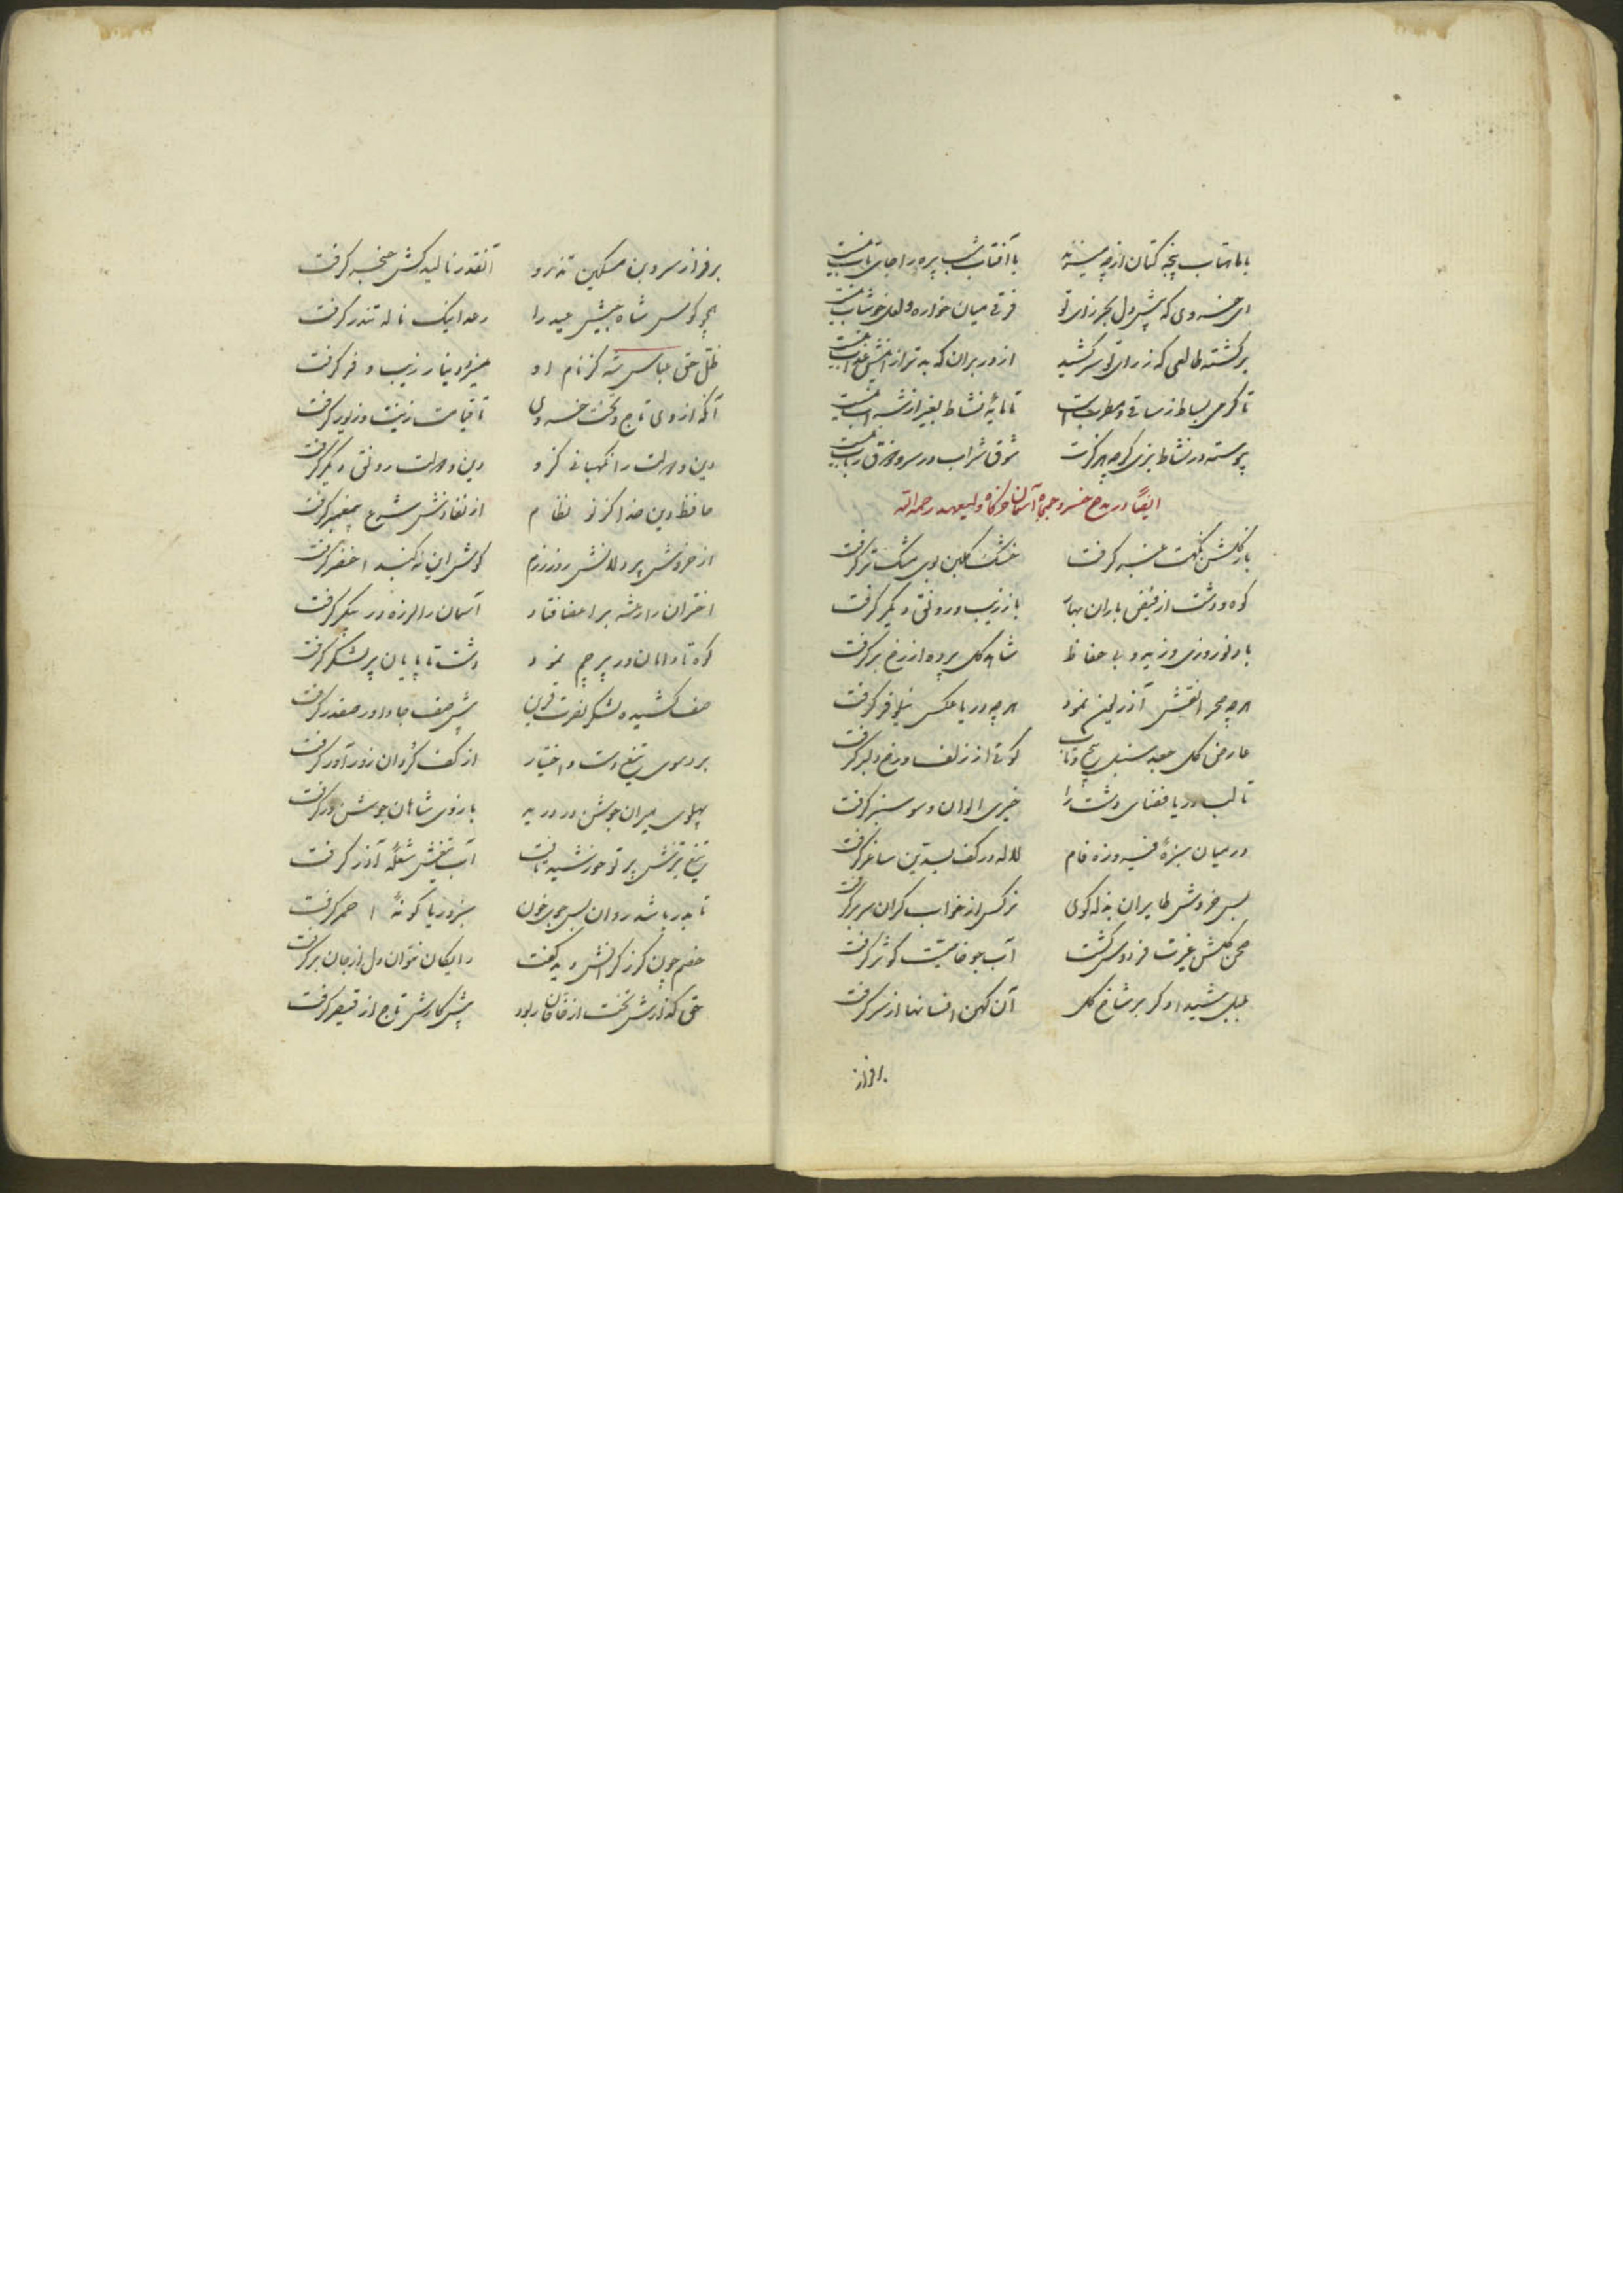 با ماهتاب پنجه کتان از چه میزند با آفتاب شب پره را جای تاب نیست
ای خسروی که پیش دل بحر زای تو فرقی میان خواره و لعل خوشاب نیست
برگشته طالعی که ز رای تو سر کشید از دور بران که بدتر ازینش عذاب نیست
تا گرمی بساط ز ساقی و مطرب است تا مایهٔ نشاط بغیر از شراب نیست
پیوسته در نشاط بزی گرچه هرگزت شوق شراب در سر و ذوق رباب نیست
ایضاً در مدح خسرو جمجاه آسمان خرگاه ولیعهد رحمه الله
باز گلشن نکهت عنبر گرفت خشک گلبن بوی مشک تر گرفت
کوه و دشت از فیض باران بهار باز زیب و رونقی دیگر گرفت
باد نوروزی وزید و بی حفاظ شاهد گل پرده از رخ بر گرفت
هرچه صحرا نقش آذریون نمود هرچه دریا عکس نیلوفر گرفت
عارض گل جعد سنبل پیچ و تاب گوئی از زلف و رخ دلبر گرفت
تا لب دریا فضای دشت را خیری الوان و سوسنبر گرفت
در میان سبزهٔ فیروزه فام لاله در کف بسدین ساغر گرفت
بس خروش طایران بذله گوی نرگس از خواب گران سر بر گرفت
صحن گلشن غیرت فردوس گشت آب جو خاصیت کوثر گرفت
بلبل شیدا دگر بر شاخ گل آن کهن افسانها از سر گرفت
بر فراز
بر فراز سرو بن مسکین تذرو آنقدر نالید کش حنجر گرفت
همچو کوس شاه جیش عید را رعد اینک ناله تندر گرفت
ظل حق عباس شه کز نام او منبر و دینار زیب و فر گرفت
آنکه از وی تاج و تخت خسروی تا قیامت زینت و زیور گرفت
دین و دولت را نگهبانی کزو دین و دولت رونقی دیگر گرفت
حافظ دین خدا کز نو نظام از نفاذش شرع پیغمبر گرفت
از خروش پر دلانش روز رزم گوش این نه گنبد اخضر گرفت
اختران را رعشه بر اعضا فتاد آسمان را لرزه در پیکر گرفت
کوه تا دامان در پرچم نمود دشت تا پایان پر لشکر گرفت
صف کشیده لشکر نصرت قرین پیش صف جا داور صفدر گرفت
برد سوی تیغ دست و اختیار از کف گردان زورآور گرفت
پهلوی میران جوشن در درید بازوی شاهان جوشن ور گرفت
تیغ تیزش پرتو خورشید یافت آب تیغش شعلهٔ آذر گرفت
تا بدریا شد روان بس جوی خون سبز دریا گونهٔ احمر گرفت
خصم چون گرز گرانش دید گفت رایگان نتوان دل از جان بر گرفت
حق گذارش تخت از خاقان ربود پیشکارش تاج از قیصر گرفت